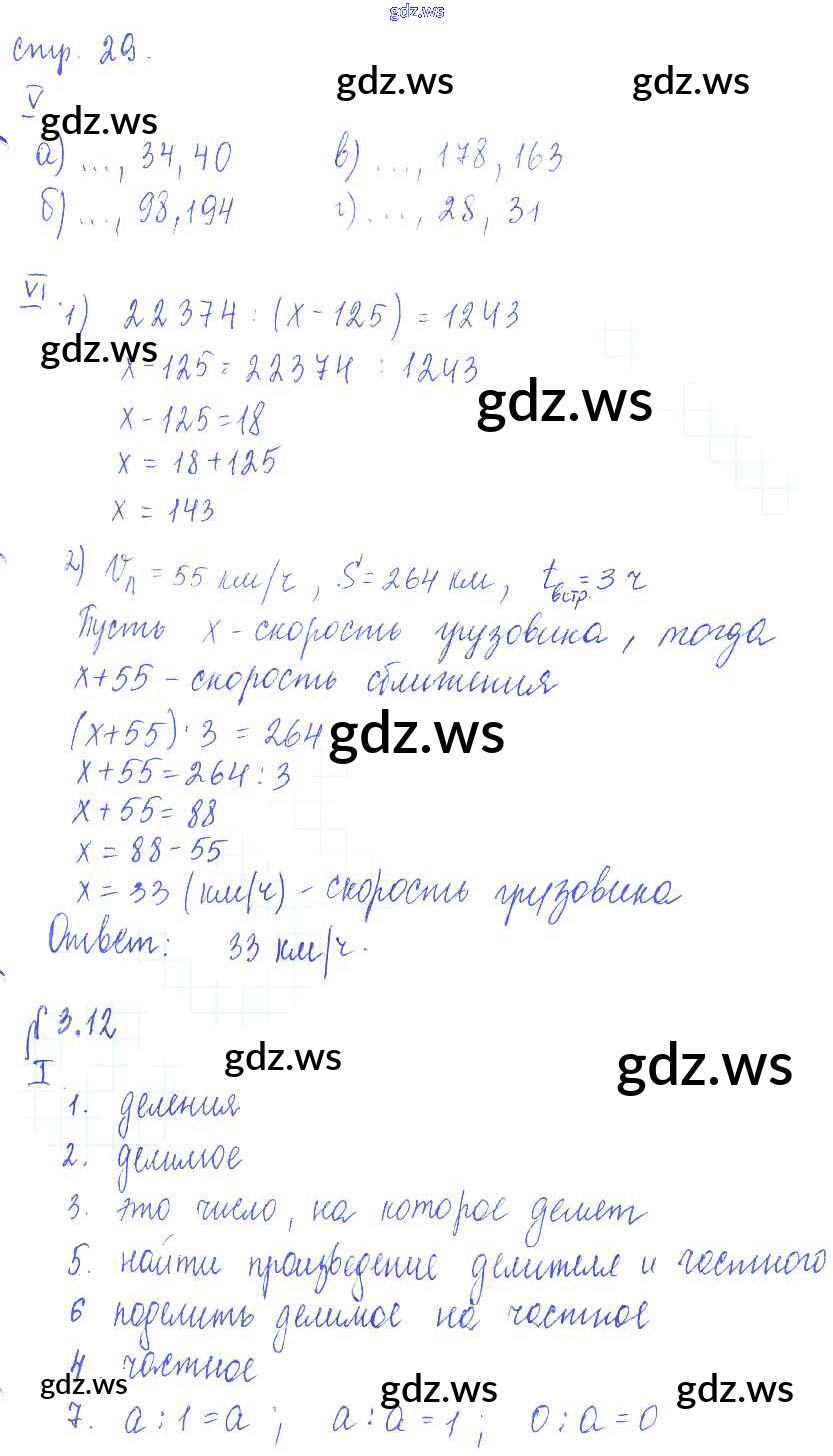 gdz.ws
стр. 29.
gdz.ws gdz.ws
V
gdz.ws
а) ..., 34, 40 в) ..., 178, 163
б) ..., 98, 194 г) ..., 28, 31
VI.
1) 22374 : (x - 125) = 1243
gdz.ws
x - 125 = 22374 : 1243
gdz.ws
x - 125 = 18
x = 18 + 125
x = 143
2) Vп = 55 км/ч, S = 264 км, tвстр. = 3 ч
Пусть x - скорость грузовика, тогда
x + 55 - скорость сближения
(x + 55) · 3 = 264
gdz.ws
x + 55 = 264 : 3
x + 55 = 88
x = 88 - 55
x = 33 (км/ч) - скорость грузовика
Ответ: 33 км/ч.
№ 3.12
gdz.ws gdz.ws
I
1. деления
2. делимое
3. это число, на которое делят
5. найти произведение делителя и частного
6 поделить делимое на частное
4 частное
gdz.ws gdz.ws gdz.ws
7. a : 1 = a ; a : a = 1 ; 0 : a = 0